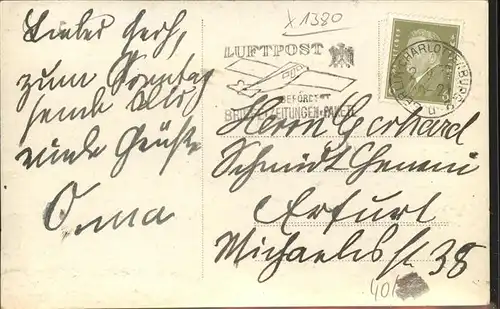 x 1380
Liebes Gerh,
zum Sonntag
sende Dir
viele Grüße
Oma
LUFTPOST
BEFÖRDERT
BRIEFE·ZEITUNGEN·PAKETE
BERLIN-CHARLOTTENBURG
Herrn Gerhard
Schmidt
Erfurt
Michaelisstr. 38
40